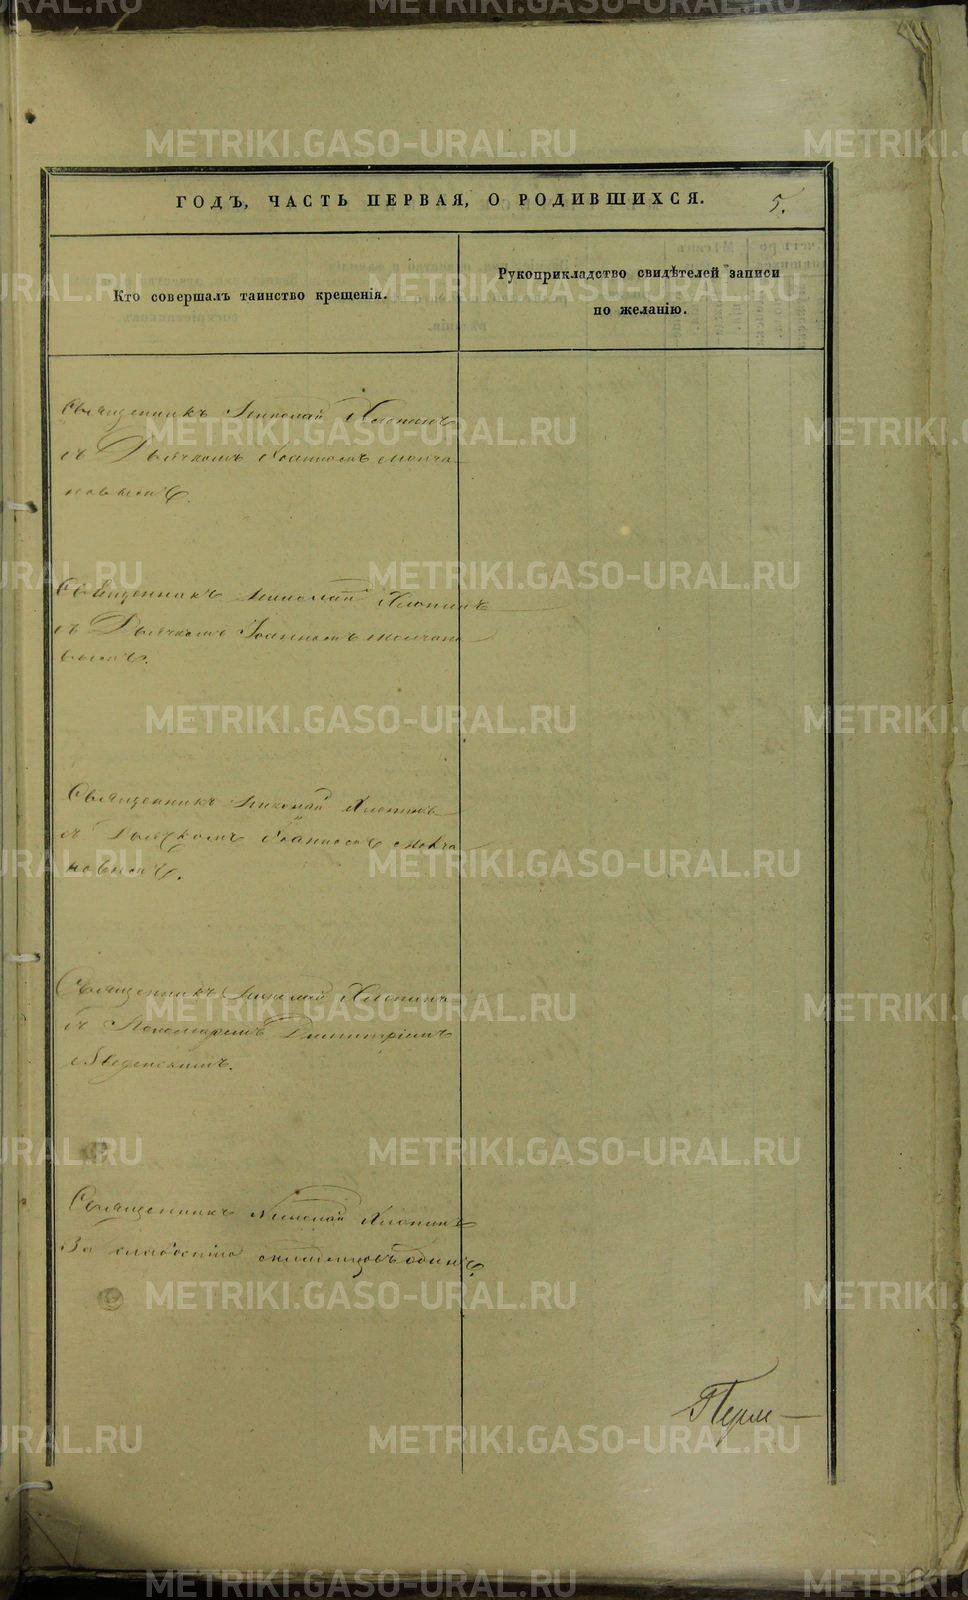 ГОДЪ, ЧАСТЬ ПЕРВАЯ, О РОДИВШИХСЯ. 5.
Кто совершалъ таинство крещенія.
Рукоприкладство свидѣтелей записи
по желанію.
Священникъ Николай Хлопинъ
съ Дьячкомъ Іоанномъ Молча
новымъ.
Священникъ Николай Хлопинъ
съ Дьячкомъ Іоанномъ Молчано
вымъ.
Священникъ Николай Хлопинъ
съ Дьячкомъ Іоанномъ Молча
новымъ.
Священникъ Николай Хлопинъ
съ Пономаремъ Димитріемъ
Введенскимъ.
Священникъ Николай Хлопинъ
За слабостію одинъ.
Перм
METRIKI.GASO-URAL.RU